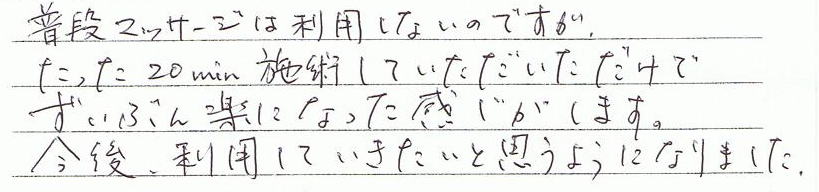 普段マッサージは利用しないのですが、
たった20min施術していただいただけで
ずいぶん楽になった感じがします。
今後、利用していきたいと思うようになりました.